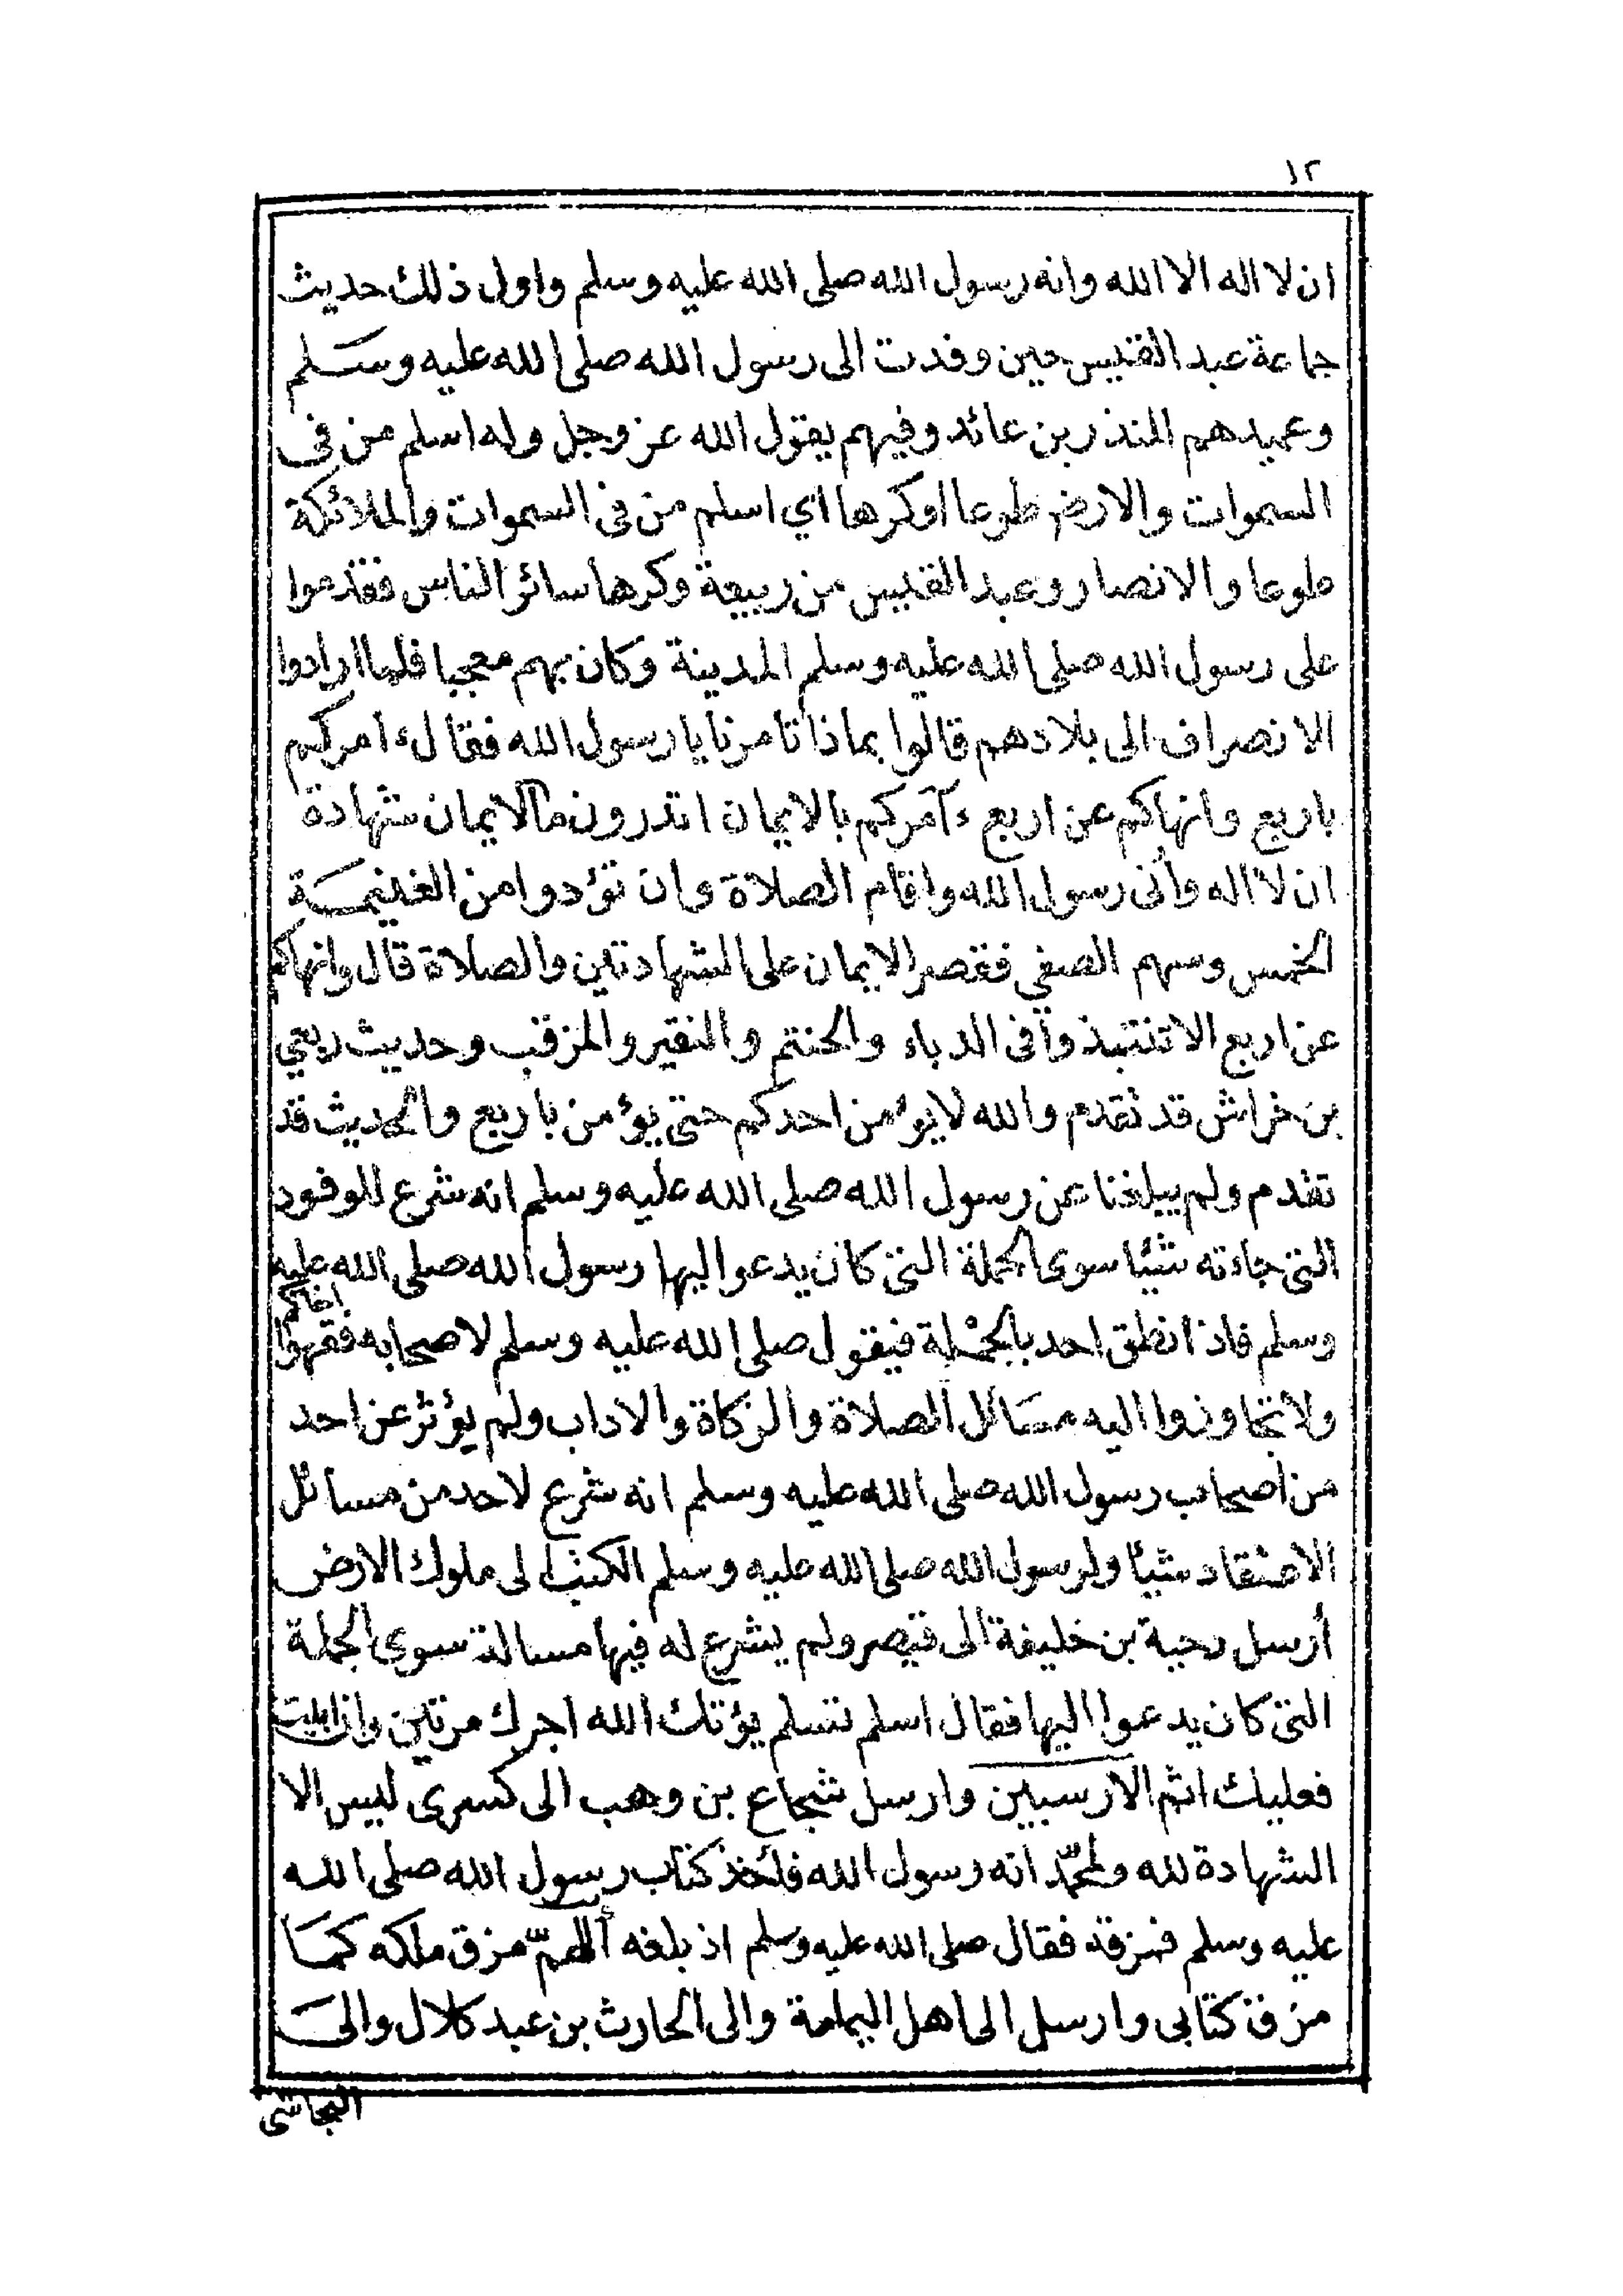 ١٢
ان لا اله الا الله وانه رسول الله صلى الله عليه وسلم واول ذلك حديث
جماعة عبد القيس حين وفدت الى رسول الله صلى الله عليه وسلم
وعميدهم المنذر بن عائد وفيهم يقول الله عز وجل وله اسلم من فى
السموات والارض طوعا اوكرها اي اسلم من فى السموات والملائكة
طوعا والانصار وعبد القيس من ربيعة وكرها سائر الناس فقدموا
على رسول الله صلى الله عليه وسلم المدينة وكان بهم معجبا فلما ارادوا
الانصراف الى بلادهم قالوا بماذا تامرنا يا رسول الله فقال ءامركم
باربع وانهاكم عن اربع ءآمركم بالايمان اتدرون ما الايمان شهادة
ان لا اله وأنى رسول الله واقام الصلاة وان تؤدوا من الغنيمة
الخمس وسهم الصفي فقصر الايمان على الشهادتين والصلاة قال وانهاكم
عن اربع الا تنتبذوا فى الدباء والحنتم والنقير والمزقب وحديث ربعي
بن خراش قد تقدم والله لا يؤمن احدكم حتى يؤمن باربع والحديث قد
تقدم ولم يبلغنا عن رسول الله صلى الله عليه وسلم انه شرع للوفود
التى جاءته شيئا سوى الجملة التى كان يدعوا اليها رسول الله صلى الله عليه
وسلم فاذا نطق احد بالجملة فيقول صلى الله عليه وسلم لاصحابه فقهوا اخاكم
ولا تجاوزوا اليه مسائل الصلاة والزكاة والاداب ولم يؤثر عن احد
من اصحاب رسول الله صلى الله عليه وسلم انه شرع لاحد من مسائل
الاعتقاد شيئا ولرسول الله صلى الله عليه وسلم الكتب الى ملوك الارض
أرسل دحية بن خليفة الى قيصر ولم يشرع له فيها مسالة سوى الجملة
التى كان يدعوا اليها فقال اسلم تسلم يؤتك الله اجرك مرتين وان ابيت
فعليك اثم الارسيين وارسل شجاع بن وهب الى كسرى ليس الا
الشهادة لله ولمحمّد انه رسول الله فأخذ كتاب رسول الله صلى الله
عليه وسلم فمزقه فقال صلى الله عليه وسلم اذ بلغه أللهمّ مزق ملكه كما
مزق كتابى وارسل الى اهل اليمامة والى الحارث بن عبد كلال والى
النجاشى